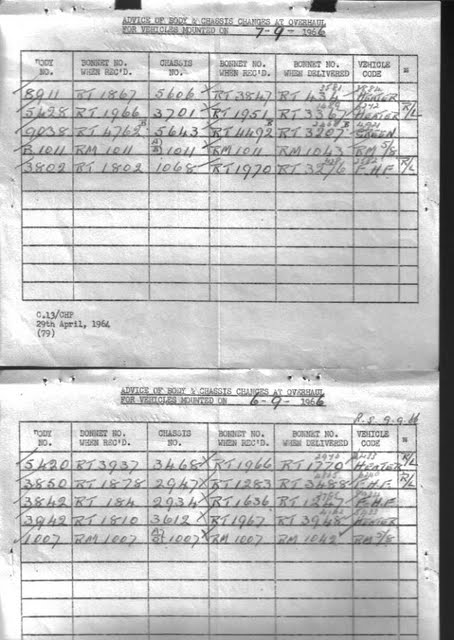 ADVICE OF BODY & CHASSIS CHANGES AT OVERHAUL
FOR VEHICLES MOUNTED ON 7-9-1966
BODY NO. BONNET NO. WHEN REC'D. CHASSIS NO. BONNET NO. WHEN REC'D. BONNET NO. WHEN DELIVERED VEHICLE CODE
8911 RT 1867 5606 RT 3847 RT HEATER
5428 RT 1966 3701 RT 1951 RT 3367 HEATER R/L
9038 RT 4762 5643 RT 4492 RT 3207 GREEN
B.1011 RM 1011 1011 RM 1011 RM 1043 RM 5/8
3802 RT 1802 1068 RT 1970 RT F.H.F R/L
C.13/CHP
29th April, 1964
(79)
ADVICE OF BODY & CHASSIS CHANGES AT OVERHAUL
FOR VEHICLES MOUNTED ON 6-9-1966
BODY NO. BONNET NO. WHEN REC'D. CHASSIS NO. BONNET NO. WHEN REC'D. BONNET NO. WHEN DELIVERED VEHICLE CODE
5420 RT 3937 3468 RT 1966 RT 1770 HEATER R/L
3850 RT 1878 2947 RT 1283 RT 3488 F.H.F R/L
3842 RT 184 2934 RT 1636 RT F.H.F
3942 RT 1810 3612 RT 1967 RT 3948 HEATER
1007 RM 1007 1007 RM 1007 RM 1042 RM 5/8